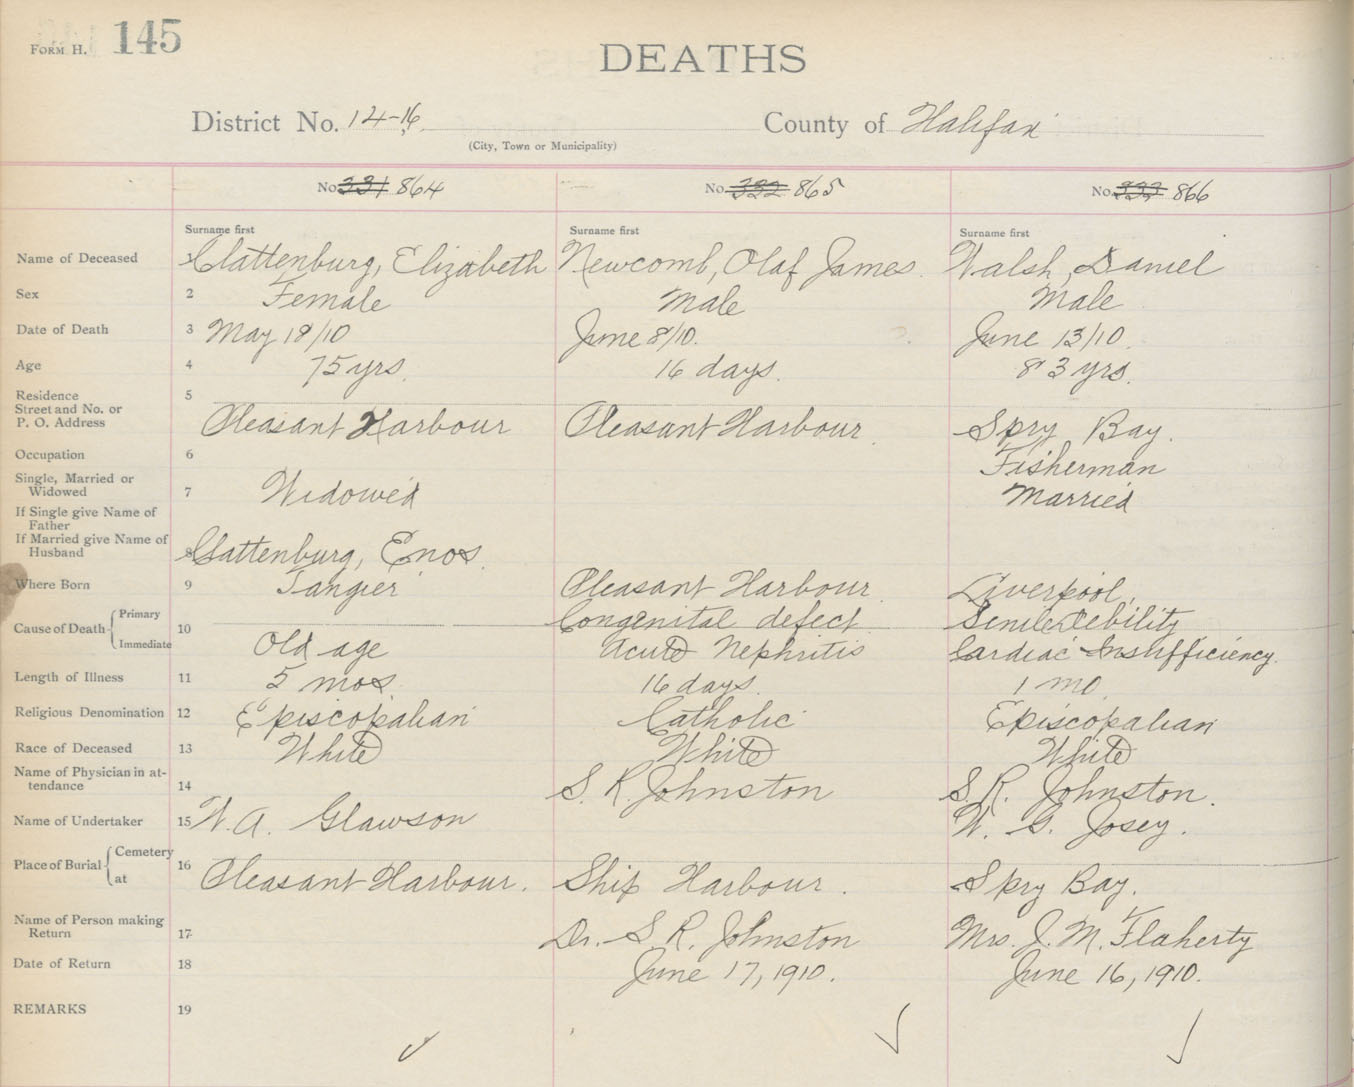 FORM H. 145
DEATHS
District No. 14-16 County of Halifax
(City, Town or Municipality)
No. 331 864 No. 332 865 No. 333 866
Surname first Surname first Surname first
Name of Deceased Clattenburg, Elizabeth Newcomb, Olaf James. Walsh, Daniel
Sex 2 Female Male Male
Date of Death 3 May 18/10 June 8/10. June 13/10.
Age 4 75 yrs. 16 days. 83 yrs.
Residence 5
Street and No. or
P. O. Address Pleasant Harbour Pleasant Harbour. Spry Bay.
Occupation 6 Fisherman
Single, Married or
Widowed 7 Widowed Married
If Single give Name of
Father
If Married give Name of
Husband 8 Clattenburg, Enos.
Where Born 9 Tangier Pleasant Harbour. Liverpool,
Cause of Death 10 Primary Congenital defect Senile Debility
Immediate Old age Acute Nephritis Cardiac Insufficiency.
Length of Illness 11 5 mos. 16 days. 1 mo
Religious Denomination 12 Episcopalian Catholic Episcopalian
Race of Deceased 13 White White White
Name of Physician in at-
tendance 14 S. R. Johnston S. R. Johnston.
Name of Undertaker 15 W. A. Glawson W. G. Josey.
Place of Burial 16 Cemetery
at Pleasant Harbour. Ship Harbour. Spry Bay.
Name of Person making
Return 17 Dr. S. R. Johnston Mrs. J. M. Flaherty
Date of Return 18 June 17, 1910. June 16, 1910.
REMARKS 19